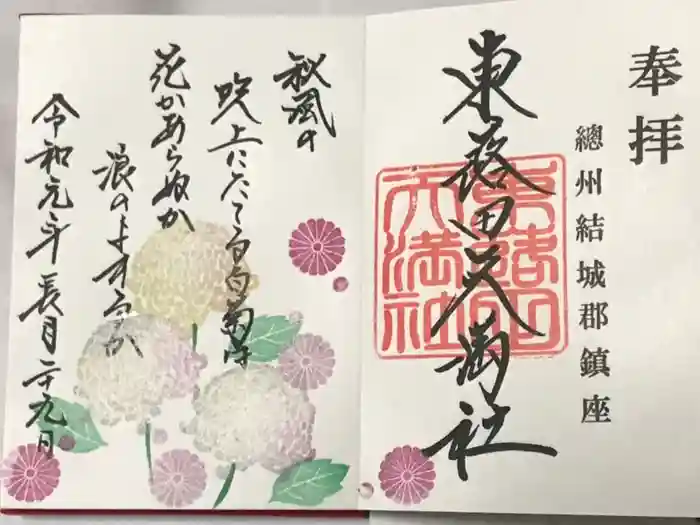 奉拝
總州結城郡鎮座
東蕗田天満社
東蕗田
天満社
秋風の
吹上にたてる白菊は
花かあらぬか
浪のよするか
令和元年長月二十九日